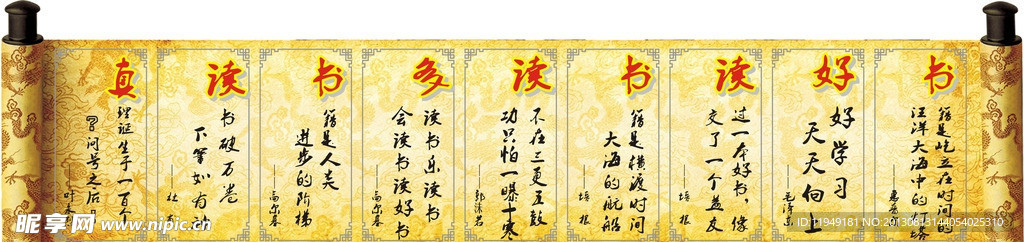 真
理诞生于一百个
问号之后
读
书破万卷
下笔如有神
——杜
书
籍是人类
进步的阶梯
——高尔基
多
读书乐读书
会读书读好书
——高尔基
读
不在三更五鼓
功只怕一曝十寒
——郭沫若
书
籍是横渡时间
大海的航船
——培根
读
过一本好书，像
交了一个益友
——培根
好
好学习
天天向上
——毛泽东
书
籍是屹立在时间的
汪洋大海中的灯塔
昵享网 www.nipic.cn
ID:11949181 NO:20130613144054025310